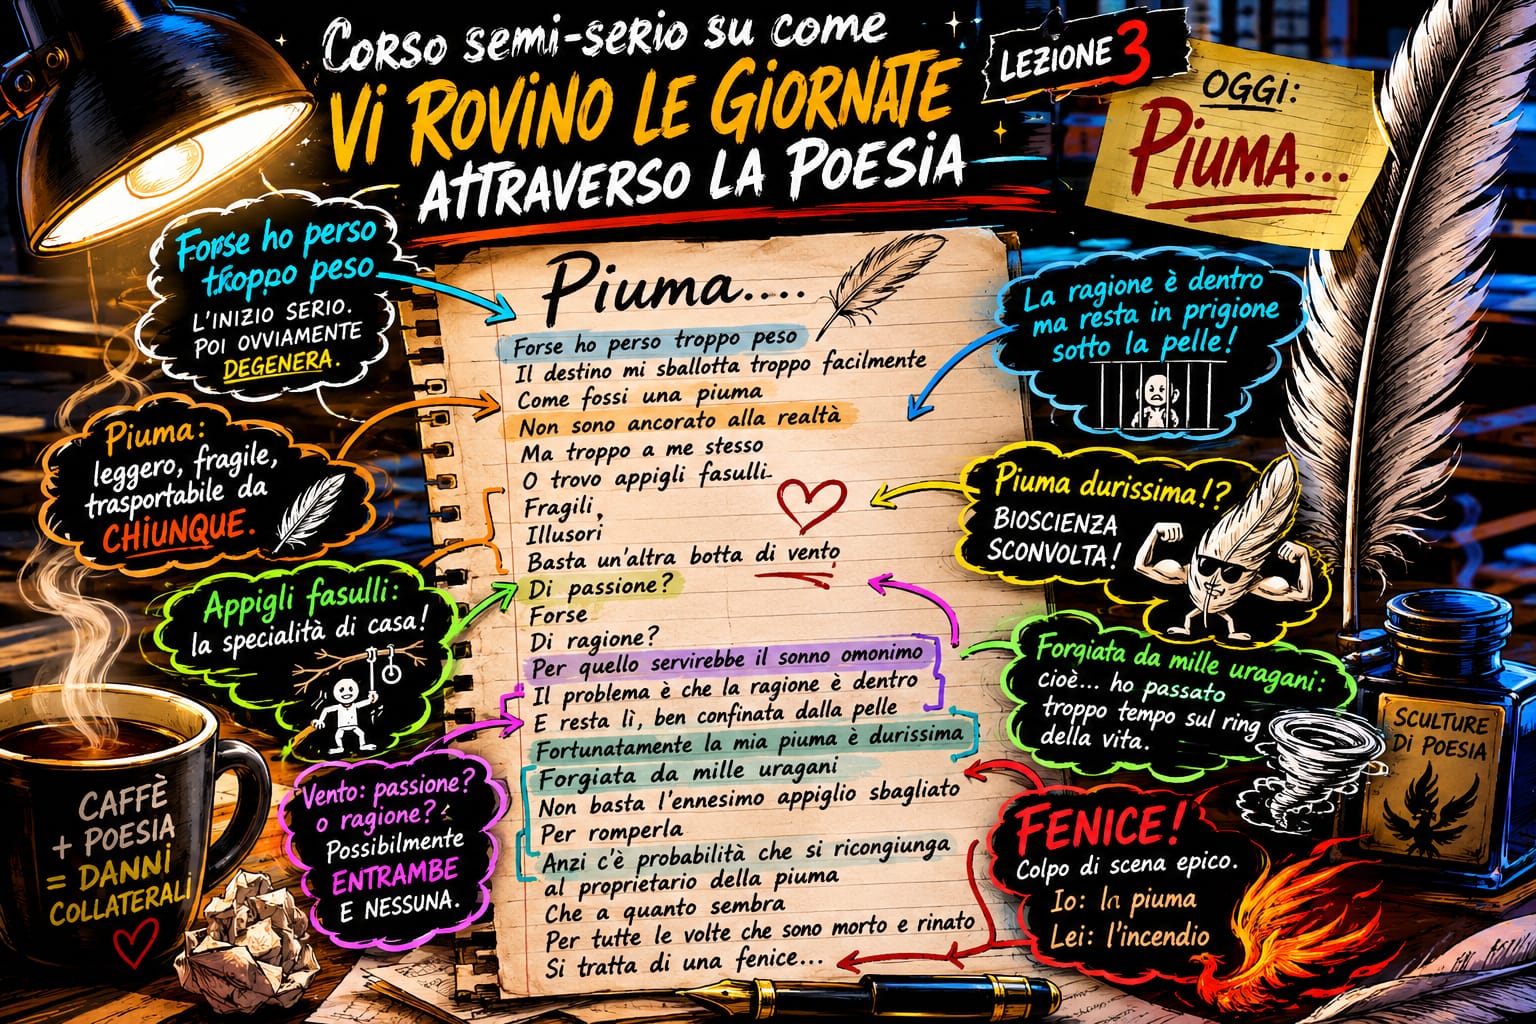 Corso semi-serio su come
Vi Rovino le Giornate
attraverso la Poesia
LEZIONE 3
OGGI:
Piuma...
Forse ho perso
troppo peso
L'INIZIO SERIO.
POI OVVIAMENTE
DEGENERA.
Piuma:
leggero, fragile,
trasportabile da
CHIUNQUE.
Appigli fasulli:
la specialità di casa!
Vento: passione?
o ragione?
Possibilmente
ENTRAMBE
E NESSUNA.
CAFFÈ
+ POESIA
= DANNI
COLLATERALI
Piuma....
Forse ho perso troppo peso
Il destino mi sballotta troppo facilmente
Come fossi una piuma
Non sono ancorato alla realtà
Ma troppo a me stesso
O trovo appigli fasulli
Fragili
Illusori
Basta un'altra botta di vento
Di passione?
Forse
Di ragione?
Per quello servirebbe il sonno omonimo
Il problema è che la ragione è dentro
E resta lì, ben confinata dalla pelle
Fortunatamente la mia piuma è durissima
Forgiata da mille uragani
Non basta l'ennesimo appiglio sbagliato
Per romperla
Anzi c'è probabilità che si ricongiunga
al proprietario della piuma
Che a quanto sembra
Per tutte le volte che sono morto e rinato
Si tratta di una fenice...
La ragione è dentro
ma resta in prigione
sotto la pelle!
Piuma durissima!?
BIOSCIENZA
SCONVOLTA!
Forgiata da mille uragani:
cioè... ho passato
troppo tempo sul ring
della vita.
FENICE!
Colpo di scena epico.
Io: la piuma
Lei: l'incendio
SCULTURE
DI POESIA